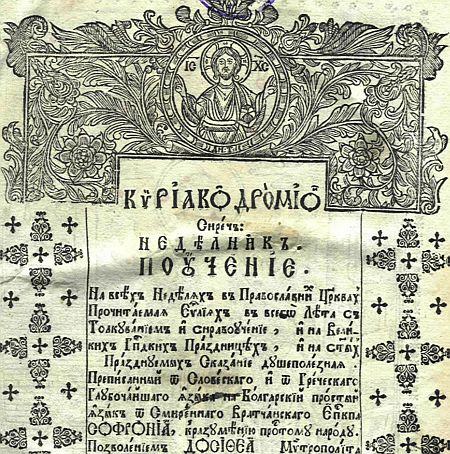 ІС ХС
КѴРІАКОДРОМІОН
Сирѣчъ:
НЕДѢЛНИКЪ.
ПОꙊЧЕНІЕ.
На всѣхъ Недѣляхъ въ Православнїи Црквах
Прочитаемая Еѵⷢ҇лїахъ въ всѐ Лѣта съ
Толкованїемъ и Нравоученїе, и на Вели
кихъ Гдскихъ Праздницѣхъ, и на Ст҃ых
Празднуемыхъ Сказанїе душеполезная
Преписаннїи ѿ Словенскаго и ѿ Греческаго
Глубочайшаго Языка на Болгарскїи простый
Языкъ ѿ Смиреннаго Вратчанскаго Епкпа
СОФРОНІА, къ разумѣнїю простому народу.
Позволенїемъ ДОСІѲЕА Мѵтрополита